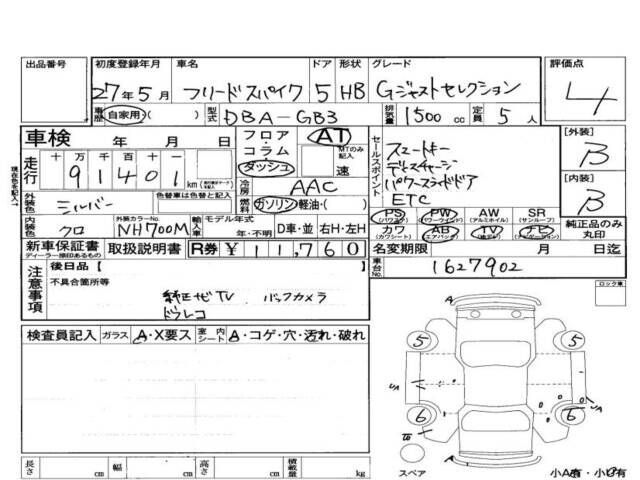 出品番号 初度登録年月 車名 ドア 形状 グレード 評価点
27年5月 フリードスパイク 5 HB Gジャストセレクション 4
車歴 自家用・( ) 型式 DBA-GB3 排気量 1500 cc 定員 5 人
車検 年 月 日
フロア・コラム・ダッシュ AT MTのみ記入 速
走行 十 万 千 百 十 一
91401 km
冷房 AAC
燃料 ガソリン・軽油・( )
セールスポイント
スマートキー
ディスチャージ
パワースライドドア
ETC
[外装] B
[内装] B
現在色を記入→
外装色 シルバー 色替車は色替と記入
内装色 クロ 外装カラーNo. NH700M 輸入車 モデル年式 年・不明 D車・並 右H・左H
PS (パワステ) PW (パワーウィンドウ) AW (アルミホイル) SR (サンルーフ)
カワ (カワシート) AB (エアバッグ) TV ナビ (ナビゲーション)
純正品のみ丸印
新車保証書 ディーラー捺印あるもの 取扱説明書 R券 ¥11,760
名変期限 月 日迄
車台No. 1627902
注意事項
後日品 [ ]
不具合箇所等
純正ナビTV バックカメラ
ドラレコ
ロック車
検査員記入 ガラス A・X要ス 室内シート A・コゲ・穴・汚れ・破れ
A
5 5
UA UA
6 6
A
スペア
長さ cm 幅 cm 高さ cm 積載量 kg